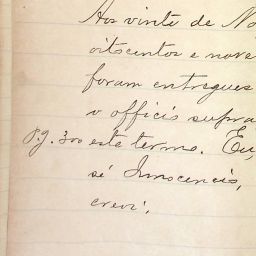 Aos vinte de No
oitocentos e nove
foram entregues
o officio supra
pg. 300 este termo. Eu,
sé Innocencio,
crevi.